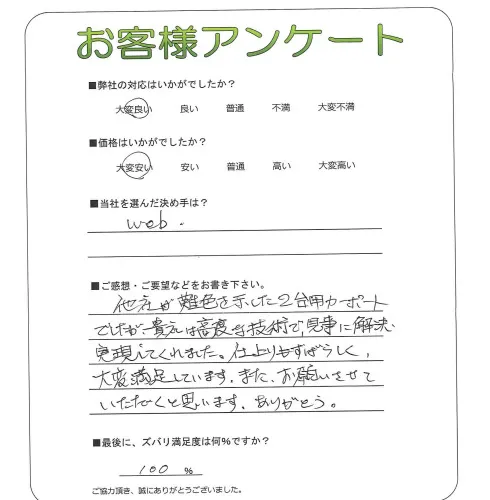 お客様アンケート
■弊社の対応はいかがでしたか？
大変良い 良い 普通 不満 大変不満
■価格はいかがでしたか？
大変安い 安い 普通 高い 大変高い
■当社を選んだ決め手は？
web.
■ご感想・ご要望などをお書き下さい。
他社が難色を示した2台用カーポート
でしたが、貴社は高度な技術で、見事に解決、
実現してくれました。仕上りもすばらしく、
大変満足しています。また、お願いさせて
いただくと思います。ありがとう。
■最後に、ズバリ満足度は何％ですか？
100 %
ご協力頂き、誠にありがとうございました。